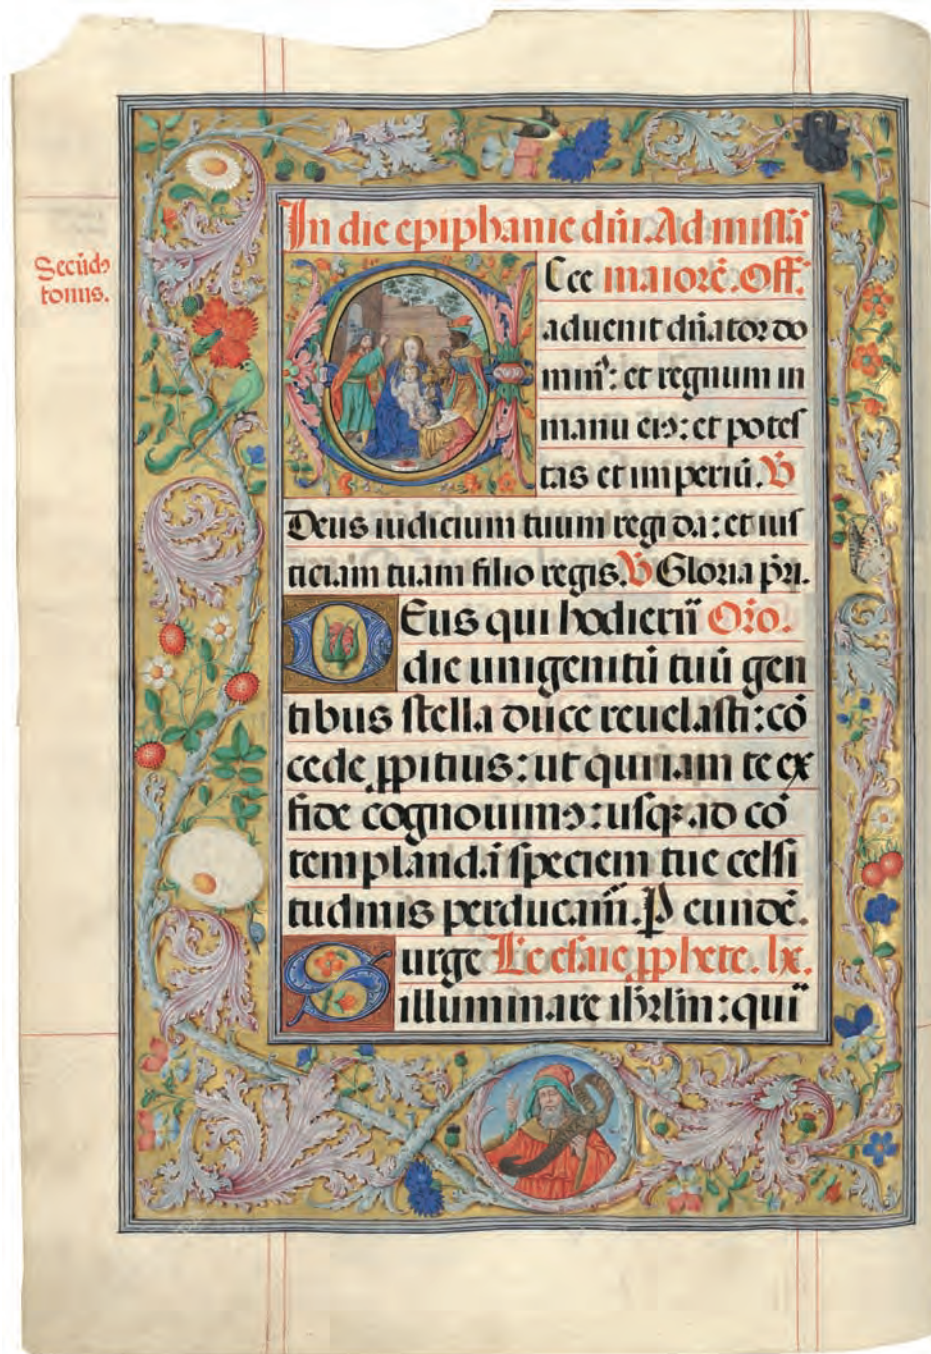 In die epiphanie dni. Ad missā
Secūdꝰ
tonus.
Ecce maiorē. Off.
aduenit dn̄ator do
minꝰ: et regnum in
manu eiꝰ: et potes
tas et imperiū. V
Deus iudicium tuum regi da: et ius
ticiam tuam filio regis. V Gloria pr̄i.
DEus qui hodiern̄ Oro.
die unigenitū tuū gen
tibus stella duce reuelasti: cō
cede ꝓpitius: ut qui iam te ex
fide cognouimꝰ: usqꝫ ad cō
templandā speciem tue celsi
tudinis perducam̄. P eundē.
Surge Lc̄ esaie ꝓphete. lx.
illuminare ihrlm̄: qui